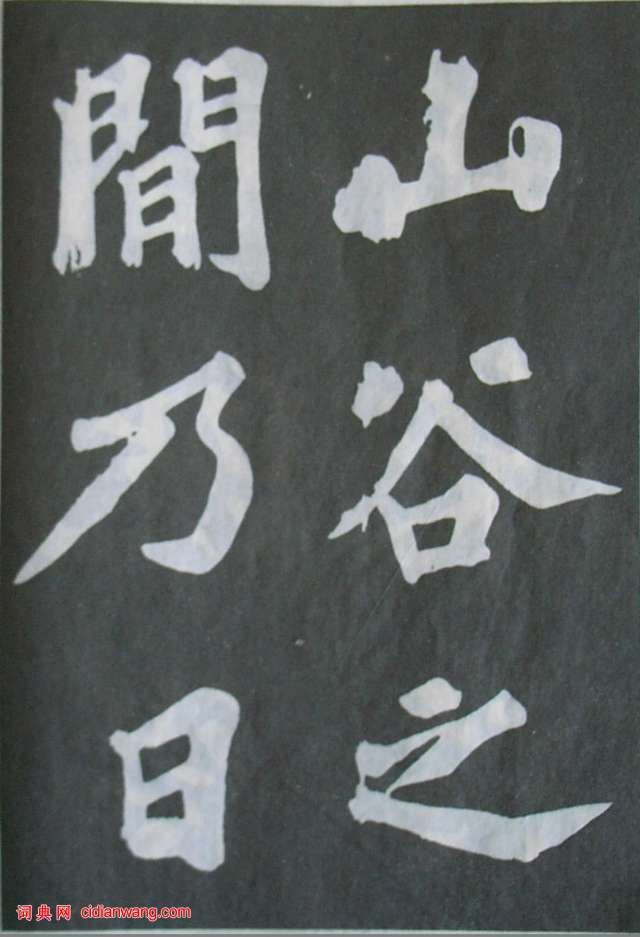 山谷之
間乃日
词典网 cidianwang.com